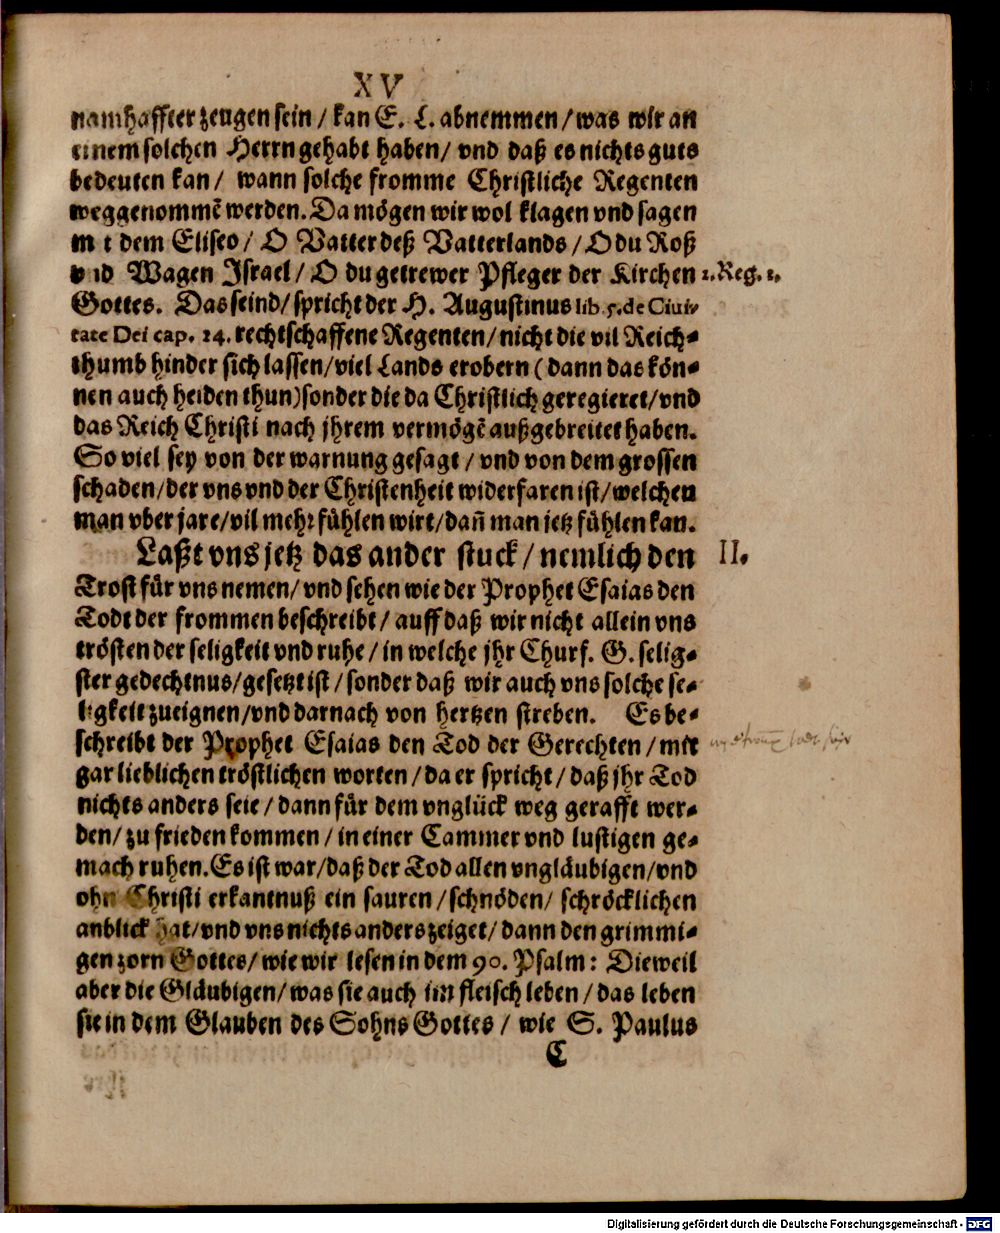 XV
namhaffter zeugen sein / kan E. L. abnemmen / was wir an
einem solchen Herrn gehabt haben / vnd daß es nichts guts
bedeuten kan / wann solche fromme Christliche Regenten
weggenommē werden. Da mögen wir wol klagen vnd sagen
mit dem Eliseo / O Vatter deß Vatterlands / O du Roß
vnd Wagen Israel / O du getrewer Pfleger der Kirchen 2. Reg. 2,
Gottes. Das seind / spricht der H. Augustinus lib. 5. de Ciui-
tate Dei cap. 24. rechtschaffene Regenten / nicht die vil Reich-
thumb hinder sich lassen / viel Lands erobern (dann das kön-
nen auch heiden thun) sonder die da Christlich geregieret / vnd
das Reich Christi nach jhrem vermögē außgebreitet haben.
So viel sey von der warnung gesagt / vnd von dem grossen
schaden / der vns vnd der Christenheit widerfaren ist / welchen
man vber jare / vil mehr fühlen wirt / dañ man jetz fühlen kan.
Laßt vns jetz das ander stuck / nemlich den II.
Trost für vns nemen / vnd sehen wie der Prophet Esaias den
Todt der frommen beschreibt / auff daß wir nicht allein vns
trösten der seligkeit vnd ruhe / in welche jhr Churf. G. selig-
ster gedechtnus / gesetzt ist / sonder daß wir auch vns solche se-
ligkeit zueignen / vnd darnach von hertzen streben. Es be-
schreibt der Prophet Esaias den Tod der Gerechten / mit
gar lieblichen tröstlichen worten / da er spricht / daß jhr Tod
nichts anders seie / dann für dem vnglück weg gerafft wer-
den / zu frieden kommen / in einer Cammer vnd lustigen ge-
mach ruhen. Es ist war / daß der Tod allen vngläubigen / vnd
ohn Christi erkantnuß ein sauren / schnöden / schröcklichen
anblick hat / vnd vns nichts anders zeiget / dann den grimmi-
gen zorn Gottes / wie wir lesen in dem 90. Psalm: Dieweil
aber die Gläubigen / was sie auch im fleisch leben / das leben
sie in dem Glauben des Sohns Gottes / wie S. Paulus
C
Digitalisierung gefördert durch die Deutsche Forschungsgemeinschaft - DFG